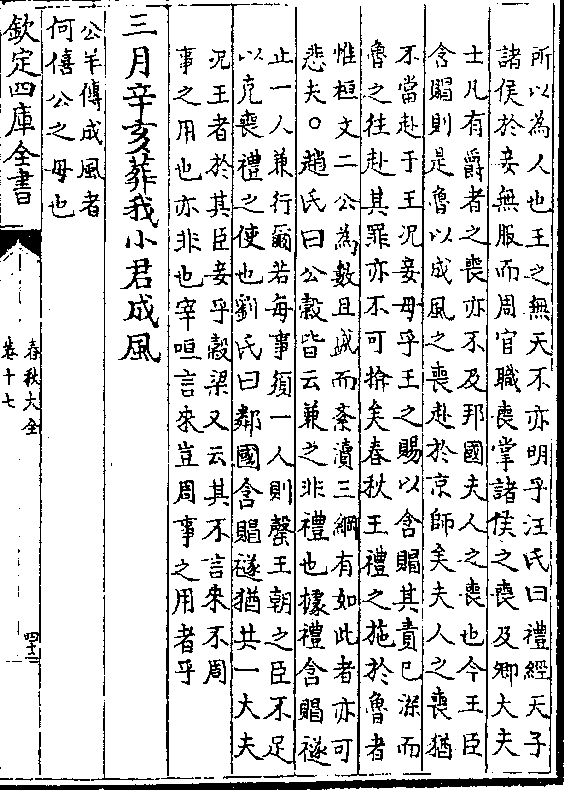 所以為人也王之無天不亦明乎汪氏曰禮經天子
諸侯於妾無服而周官職喪掌諸侯之喪及卿大夫
士凡有爵者之喪亦不及邦國夫人之喪也今王臣
含賵則是魯以成風之喪赴於京師矣夫人之喪猶
不當赴于王況妾母乎王之賜以含賵其責已深而
魯之往赴其罪亦不可揜矣春秋王禮之施於魯者
惟桓文二公為數且盛而紊瀆三綱有如此者亦可
悲夫○趙氏曰公穀皆云兼之非禮也據禮含賵襚
止一人兼行爾若每事須一人則罄王朝之臣不足
以充喪禮之使也劉氏曰鄰國含賵襚猶共一大夫
况王者於其臣妾乎穀梁又云其不言來不周
事之用也亦非也宰咺言來豈周事之用者乎
三月辛亥葬我小君成風
公羊傳成風者
何僖公之母也
欽定四庫全書
春秋大全
卷十七